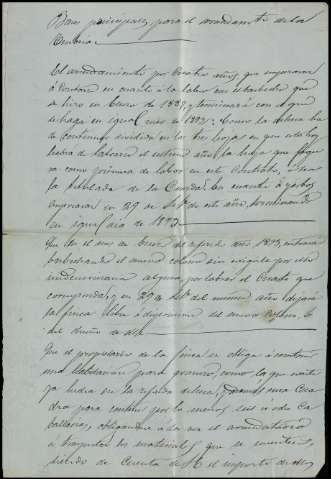 Bases principales, para el arrendamiento de la
El arrendamiento por Cuatro años, que empezaran
á Contarse en cuanto á la labor con el barbecho que
se hizo en Enero de 1889, y terminará con el que
se haga en igual mes en 1893: Como la dehesa ha
de continuar dividida en las tres hojas en que esta hoy
habrá de labrarse el último año la hoja que fi
va como primera de labor en este Contrato, ó sea
la de la En cuanto á pastos
empezará en 29 de Sbre de este año, terminando
en igual dia de 1893
Que en el mes de Enero de referido año 1893, entrará
barbechando el nuevo colono sin exigirle por esto
indemnizacion alguna, por labrar el Cuarto que
corresponda; y en 29 de Sbre del mismo año dejará
la finca libre á disposicion del nuevo Colono, ó
del dueño de ella
Que el propietario de la finca se obliga á construir
una habitacion para granero como la que existe
ya hecha en la referida dehesa, y una Cua
dra para por lo menos seis ó ocho Ca
ballerias, obligandose á la vez el arrendatario
á los materiales que se necesiten,
siendo de Cuenta de el importe de ellos